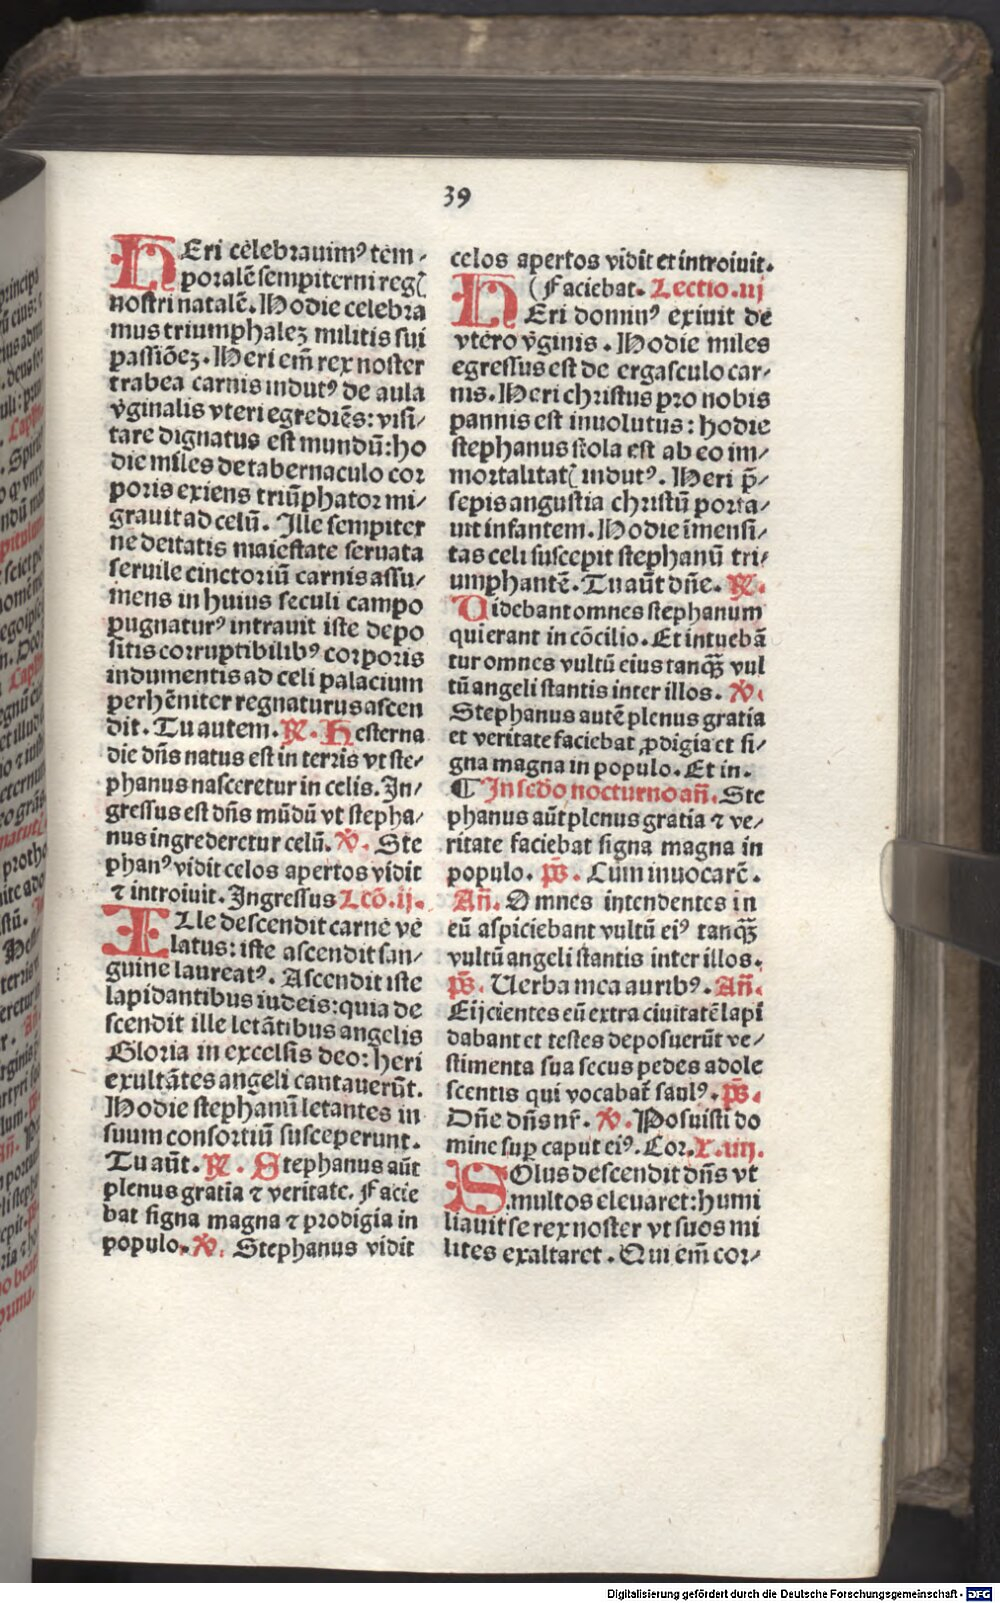 39
HEri celebrauim⁹ tem-
poralē sempiterni regꝭ
nostri natalē. Hodie celebra
mus triumphalez militis sui
passiōez. Heri em̄ rex noster
trabea carnis indut⁹ de aula
v̄ginalis vteri egrediēs: visi-
tare dignatus est mundū: ho
die miles de tabernaculo cor
poris exiens triūphator mi-
grauit ad celū. Ille sempiter
ne deitatis maiestate seruata
seruile cinctoriū carnis assu-
mens in huius seculi campo
pugnatur⁹ intrauit iste depo
sitis corruptibilib⁹ corporis
indumentis ad celi palacium
perhēniter regnaturus ascen
dit. Tu autem. ℟. Hesterna
die dn̄s natus est in terris vt ste-
phanus nasceretur in celis. In-
gressus est dn̄s mūdū vt stepha-
nus ingrederetur celū. ℣. Ste
phan⁹ vidit celos apertos vidit
⁊ introiuit. Ingressus Lcō. ij.
ILle descendit carne ve
latus: iste ascendit san-
guine laureat⁹. Ascendit iste
lapidantibus iudeis: quia de
scendit ille letātibus angelis
Gloria in excelsis deo: heri
exultātes angeli cantauerūt.
Hodie stephanū letantes in
suum consortiū susceperunt.
Tu aūt. ℟. Stephanus aūt
plenus gratia ⁊ veritate. Facie
bat signa magna ⁊ prodigia in
populo. ℣. Stephanus vidit
celos apertos vidit et introiuit.
(Faciebat. Lectio. iij
HEri domin⁹ exiuit de
vtero v̄ginis. Hodie miles
egressus est de ergasculo car-
nis. Heri christus pro nobis
pannis est inuolutus: hodie
stephanus stola est ab eo im-
mortalitatꝭ indut⁹. Heri p̄-
sepis angustia christū porta-
uit infantem. Hodie īmensi-
tas celi suscepit stephanū tri-
umphantē. Tu aūt dn̄e. ℟.
Uidebant omnes stephanum
qui erant in cōcilio. Et intuebā
tur omnes vultū eius tanqꝫ vul
tū angeli stantis inter illos. ℣.
Stephanus autē plenus gratia
et veritate faciebat ꝓdigia et si-
gna magna in populo. Et in.
¶ In scd̄o nocturno an̄. Ste
phanus aūt plenus gratia ⁊ ve-
ritate faciebat signa magna in
populo. p̄s. Cum inuocarē.
An̄. Omnes intendentes in
eū aspiciebant vultū ei⁹ tanqꝫ
vultū angeli stantis inter illos.
p̄s. Uerba mea aurib⁹. An̄.
Eijcientes eū extra ciuitatē lapi
dabant et testes deposuerūt ve-
stimenta sua secus pedes adole
scentis qui vocabat̄ saul⁹. p̄s.
Dn̄e dn̄s nr̄. ℣. Posuisti do
mine suꝑ caput ei⁹. Cor. L. iiij.
SOlus descendit dn̄s vt
multos eleuaret: humi
liauit se rex noster vt suos mi
lites exaltaret. Qui em̄ cor-
Digitalisierung gefördert durch die Deutsche Forschungsgemeinschaft - DFG